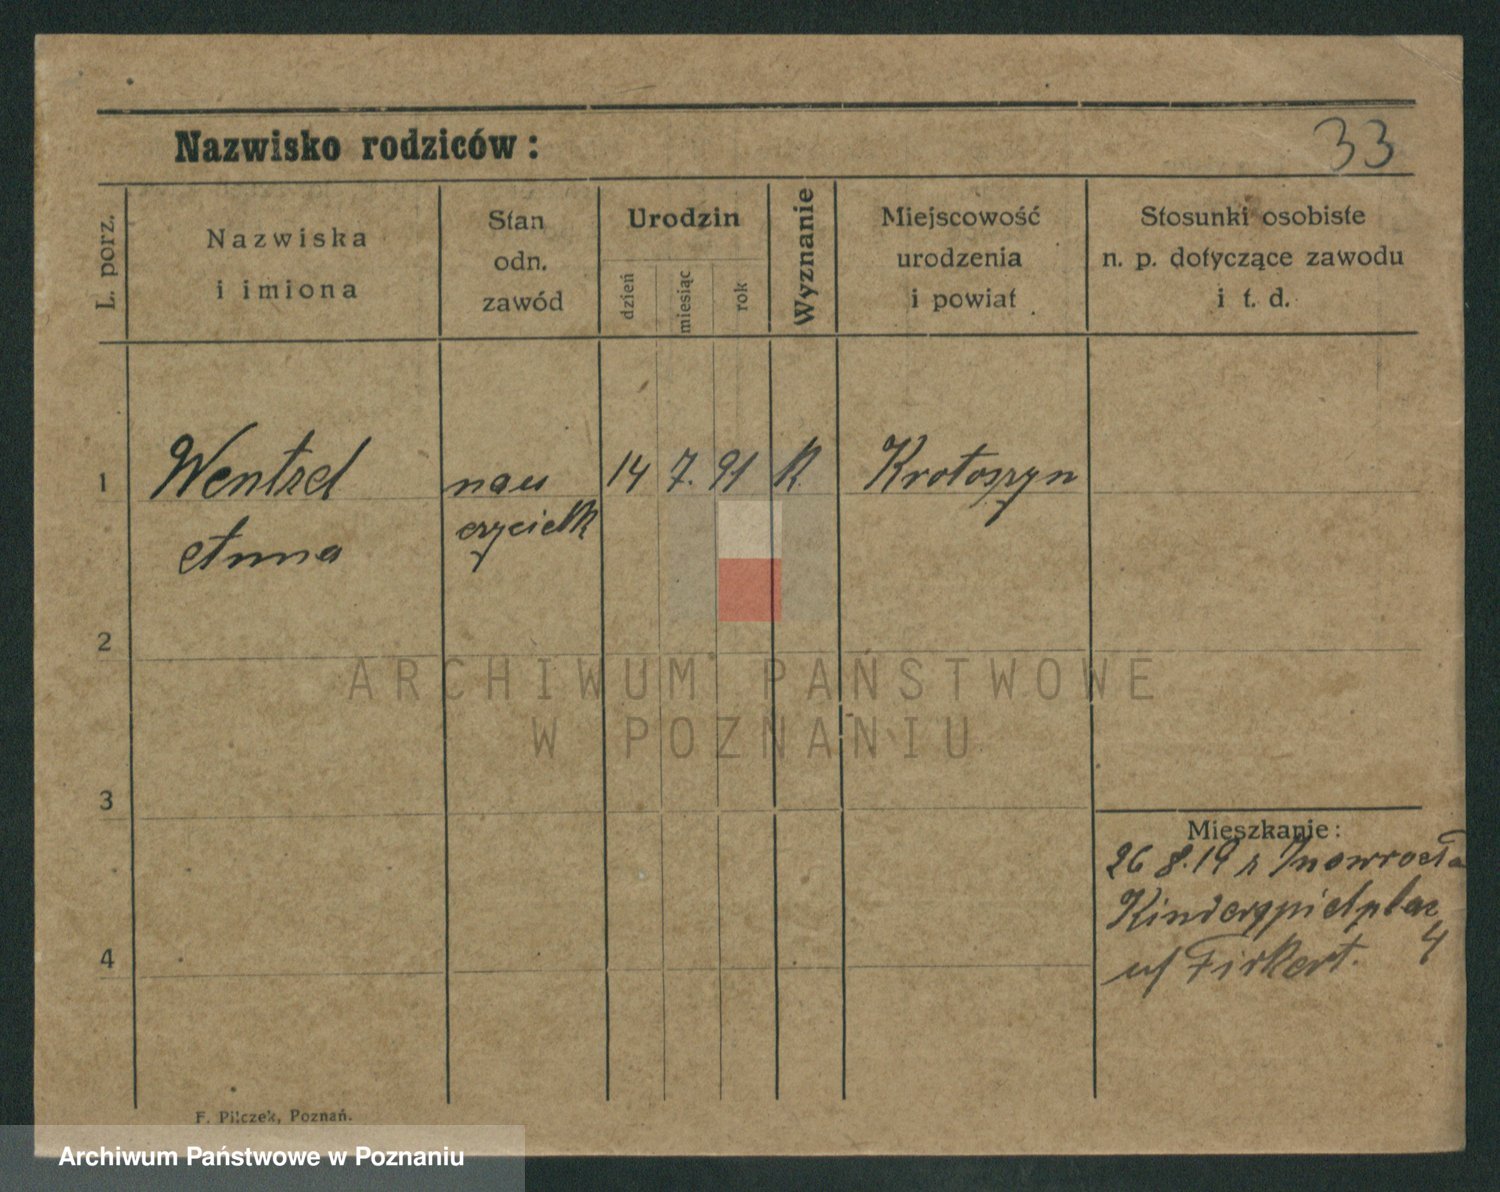 Nazwisko rodziców :
33
L. porz.
Nazwiska
i imiona
Stan
odn.
zawód
Urodzin
dzień
miesiąc
rok
Wyznanie
Miejscowość
urodzenia
i powiat
Stosunki osobiste
n. p. dotyczące zawodu
i t. d.
1 Wentzel nau 14 7. 91 K Krotoszyn
Anna czycielk
2
ARCHIWUM PAŃSTWOWE
W POZNANIU
3
Mieszkanie :
26 8.19 z Inowrocła
Kinderspielplac
4
4
F. Pilczek, Poznań.
Archiwum Państwowe w Poznaniu